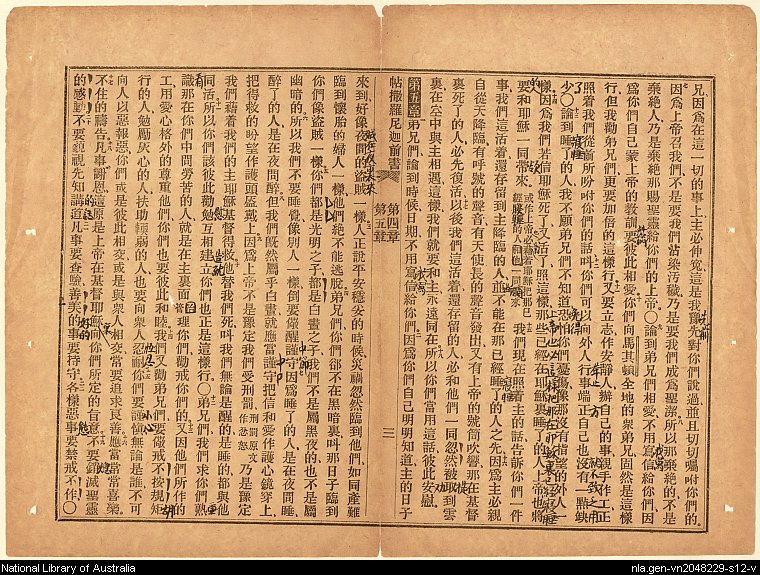 兄因爲在這一切的事上主必伸寃這是我豫先對你們說過並且切切囑咐你們的
因爲上帝召我們不是要我們沾染汚穢乃是要我們成爲聖潔所以那棄絶的不是
棄絶人乃是棄絶那賜聖靈給你們的上帝〇論到弟兄們相愛不用寫信給你們因
爲你們自己蒙上帝的敎訓要彼此相愛你們向馬其頓全地的衆弟兄固然是這樣
行但我勸弟兄們更要加倍的這樣行又要立志作安靜人辦自己的事親手作工正
照着我們從前所吩咐你們的話叫你們可以向外人行事端正自己也沒有一點缺
少〇論到睡了的人我不願弟兄們不知道恐怕你們憂傷像那沒有指望的外人一
樣因爲我們若信耶穌死了又活了照這樣那些已經在耶穌裏睡了的人上帝也將
要和耶穌一同帶來 我們現在照着主的話告訴你們一件
事我們這活着還存留到主降臨的人並不能在那已經睡了的人之先因爲主必親
自從天降臨有呼號的聲音有天使長的聲音發出又有上帝的號筒吹響那在基督
裏死了的人必先復活以後我們這活着還存留的人必和他們一同忽然被取到雲
裏在空中與主相遇這樣我們就要和主永遠同在所以你們當用這話彼此安慰
第五章弟兄們論到時候日期不用寫信給你們因爲你們自己明明知道主的日子
帖撒羅尼迦前書 第四章 第五章 二
來到好像夜間的盜賊一樣人正說平安穩妥的時候災禍忽然臨到他們如同產難
臨到懷胎的婦人一樣他們絶不能逃脫弟兄們你們卻不在黑暗裏叫那日子臨到
你們像盜賊一樣你們都是光明之子都是白晝之子我們不是屬黑夜的也不是屬
幽暗的所以我們不要睡覺像別人一樣倒要儆醒謹守因爲睡了的人是在夜間睡
醉了的人是在夜間醉但我們既然屬乎白晝就應當謹守把信和愛作護心鏡穿上
把得救的盼望作護頭盔戴上因爲上帝不是豫定我們受刑罰刑罰原文作忿怒乃是豫定
我們藉着我們的主耶穌基督得救他替我們死叫我們無論是醒的是睡的都與他
同活所以你們該彼此勸勉互相建立你們也正是這樣行〇弟兄們我們求你們熟
識那在你們中間勞苦的人就是在主裏面管理你們勸戒你們的又因他們所作的
工用愛心格外的尊重他們你們也要彼此和睦我們又勸弟兄們要儆戒不按規矩
行的人勉勵灰心的人扶助輭弱的人也要向衆人忍耐你們要謹愼無論是誰不可
向人以惡報惡你們或是彼此相交或是與衆人相交常要追求良善應當常常喜樂
不住的禱告凡事謝恩這原是上帝在基督耶穌向你們所定的旨意不要銷滅聖靈
的感動不要藐視先知講道凡事要查驗善美的事要持守各樣惡事要禁戒不作〇
National Library of Australia
nla.gen-vn2048229-s12-v